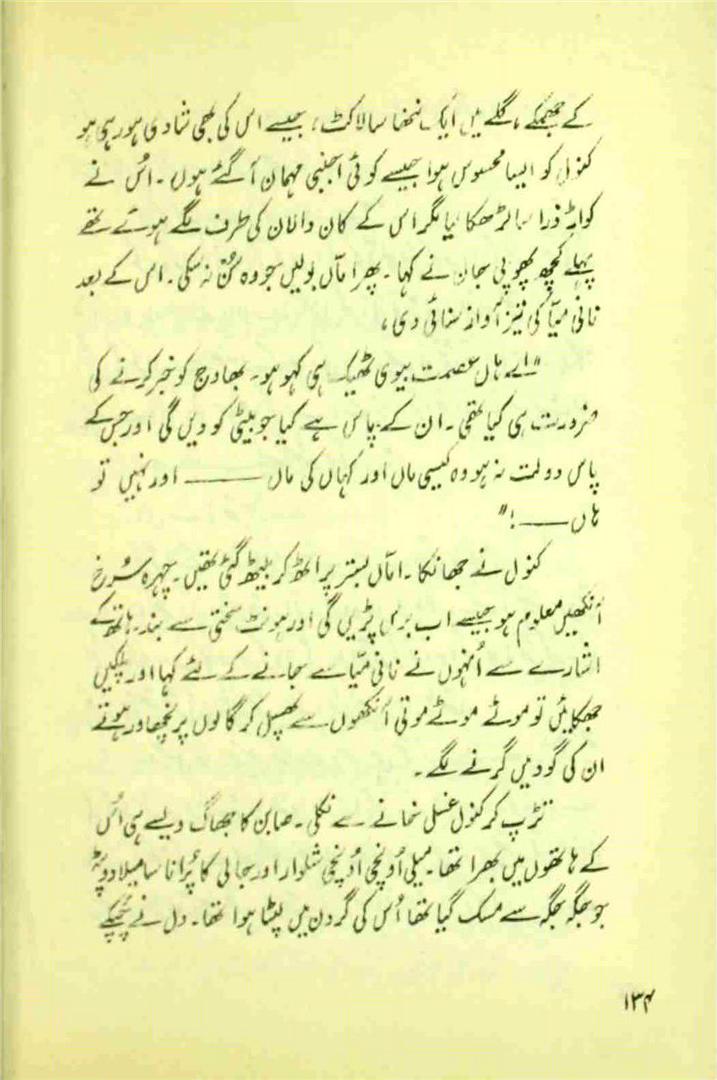 کے جھمکے، گلے میں ایک ننھا سا لاکٹ، جیسے اس کی بھی شادی ہو رہی ہو
کنول کو ایسا محسوس ہوا جیسے کوئی اجنبی مہمان آ گئے ہوں۔ اُس نے
کواڑ ذرا سا لڑھکا لیا مگر اس کے کان دالان کی طرف لگے ہوئے تھے
پہلے کچھ پھوپی جان نے کہا۔ پھر اماں بولیں جو وہ سُن نہ سکی۔ اس کے بعد
نانی میّا کی تیز آواز سنائی دی،
"اے ہاں عصمت بیوی ٹھیک ہی کہو ہو۔ بھاوج کو خبر کرنے کی
ضرورت ہی کیا تھی۔ ان کے پاس ہے کیا جو بیٹی کو دیں گی اور جس کے
پاس دولت نہ ہو وہ کیسی ماں اور کہاں کی ماں ــــــــ اور نہیں تو
ہاں ــــــ!"
کنول نے جھانکا۔ اماں بستر پر اٹھ کر بیٹھ گئی تھیں۔ چہرہ سُرخ
آنکھیں معلوم ہو جیسے اب برس پڑیں گی اور ہونٹ سختی سے بند۔ ہاتھ کے
اشارے سے اُنہوں نے نانی میّا سے جانے کے لئے کہا اور پلکیں
جھپکائیں تو موٹے موٹے موتی آنکھوں سے پھسل کر گالوں پر نچھاور ہوتے
ان کی گود میں گرنے لگے۔
تڑپ کر کنول غسل خانے سے نکلی۔ صابن کا جھاگ ویسے ہی اُس
کے ہاتھوں میں بھرا تھا۔ میلی اُونچی اُونچی شلوار اور جالی کا پُرانا سا میلا دوپٹہ
جو جگہ جگہ سے مسک گیا تھا اُس کی گردن میں لپٹا ہوا تھا۔ دل نے چُپکے
۱۳۴